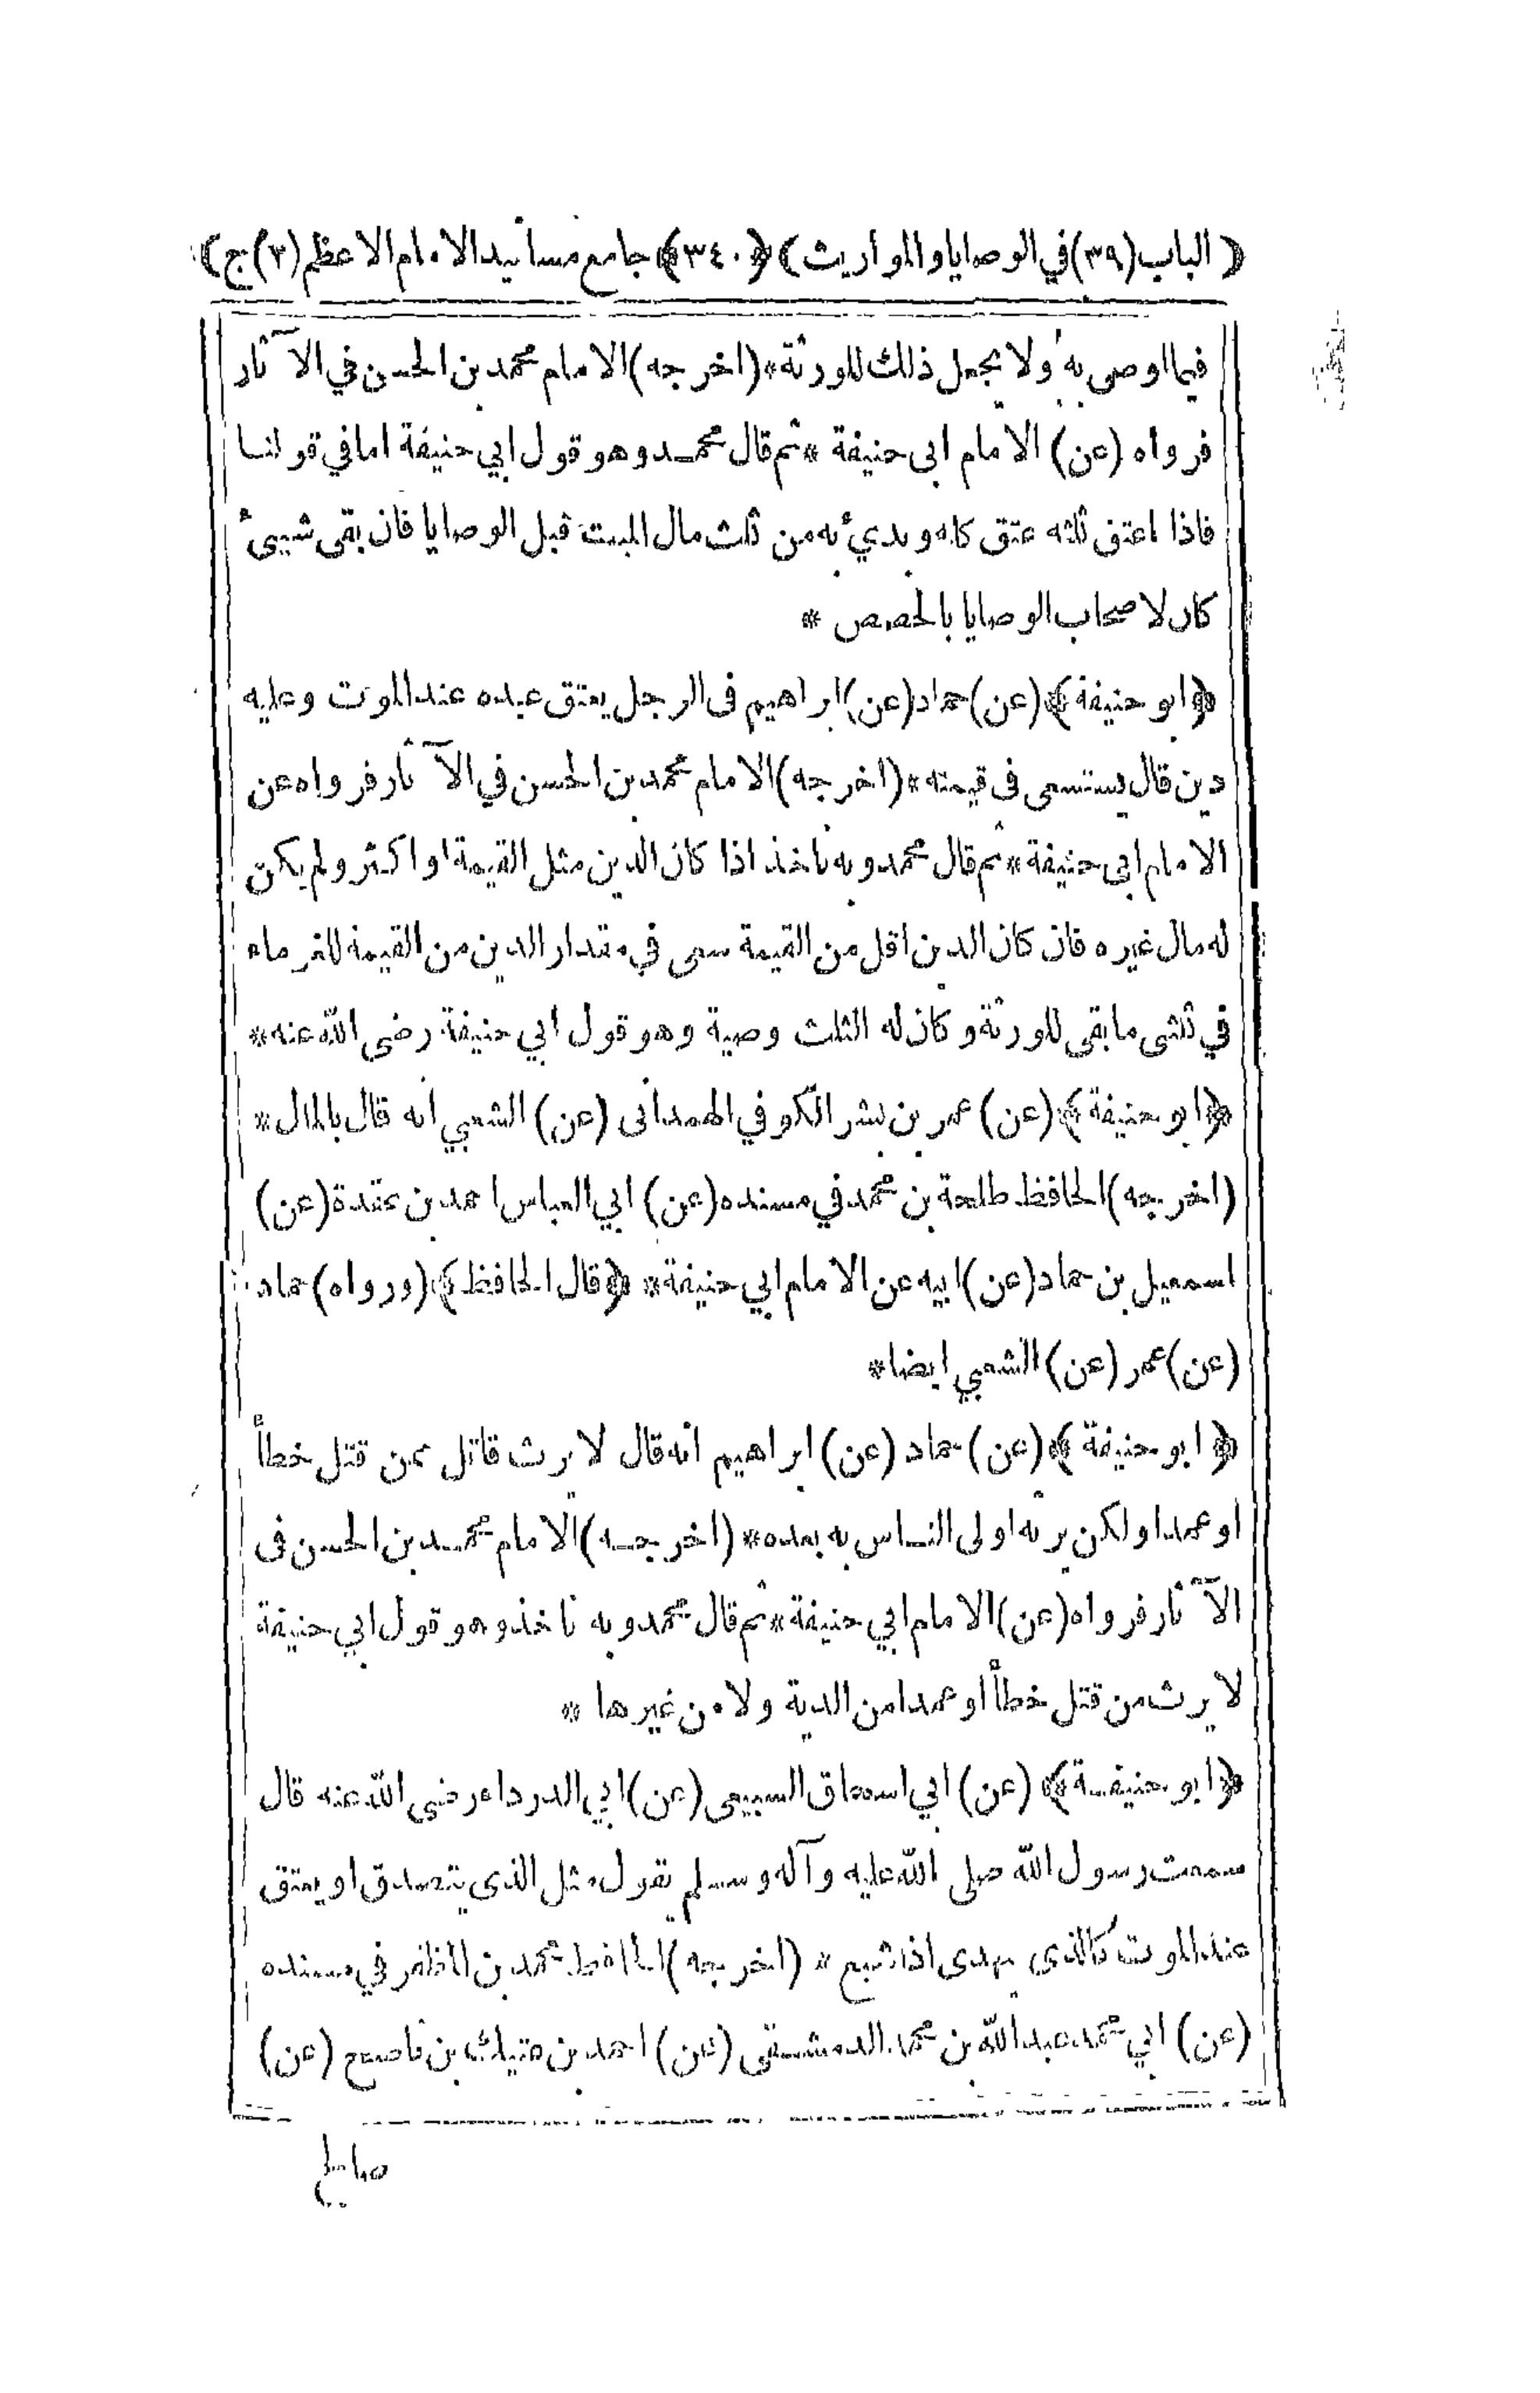 ﴿ الباب (٣٩) في الوصايا والمواريث ﴾ ﴿٣٤٠﴾ جامع مسانيد الامام الاعظم (٢) ج ﴾
فيما اوصى به ولا يجعل ذلك للورثة * (اخرجه) الامام محمد بن الحسن في الآثار
فرواه (عن) الامام ابى حنيفة * ثم قال محمد وهو قول ابي حنيفة اما في قولنا
فاذا اعتق ثلثه عتق كله وبدئ به من ثلث مال الميت قبل الوصايا فان بقى شيئ
كان لاصحاب الوصايا بالحصص *
﴿ابو حنيفة﴾ (عن) حماد (عن) ابراهيم فى الرجل يعتق عبده عند الموت وعليه
دين قال يستسعى فى قيمته * (اخرجه) الامام محمد بن الحسن في الآثار فرواه عن
الامام ابى حنيفة * ثم قال محمد وبه ناخذ اذا كان الدين مثل القيمة او اكثر ولم يكن
له مال غيره فان كان الدين اقل من القيمة سعى في مقدار الدين من القيمة للغرماء
في ثلثى ما بقى للورثة وكان له الثلث وصية وهو قول ابي حنيفة رضى الله عنه *
﴿ابو حنيفة﴾ (عن) عمر بن بشر الكوفي الهمدانى (عن) الشعبي انه قال بالمال *
(اخرجه) الحافظ طلحة بن محمد في مسنده (عن) ابي العباس احمد بن عقدة (عن)
اسمعيل بن حماد (عن) ابيه عن الامام ابي حنيفة * ﴿قال الحافظ﴾ (ورواه) حماد
(عن) عمر (عن) الشعبي ايضا *
﴿ ابو حنيفة ﴾ (عن) حماد (عن) ابراهيم انه قال لا يرث قاتل ممن قتل خطأ
او عمدا ولكن يرثه اولى الناس به بعده * (اخرجه) الامام محمد بن الحسن فى
الآثار فرواه (عن) الامام ابي حنيفة * ثم قال محمد وبه ناخذ وهو قول ابي حنيفة
لا يرث من قتل خطأ او عمدا من الدية ولا من غيرها *
﴿ابو حنيفة﴾ (عن) ابي اسحاق السبيعى (عن) ابي الدرداء رضى الله عنه قال
سمعت رسول الله صلى الله عليه وآله وسلم يقول مثل الذى يتصدق او يعتق
عند الموت كالذي يهدى اذا شبع * (اخرجه) الحافظ محمد بن المظفر في مسنده
(عن) ابي محمد عبد الله بن محمد الدمشقى (عن) احمد بن عتيك بن ناصح (عن)
صالح